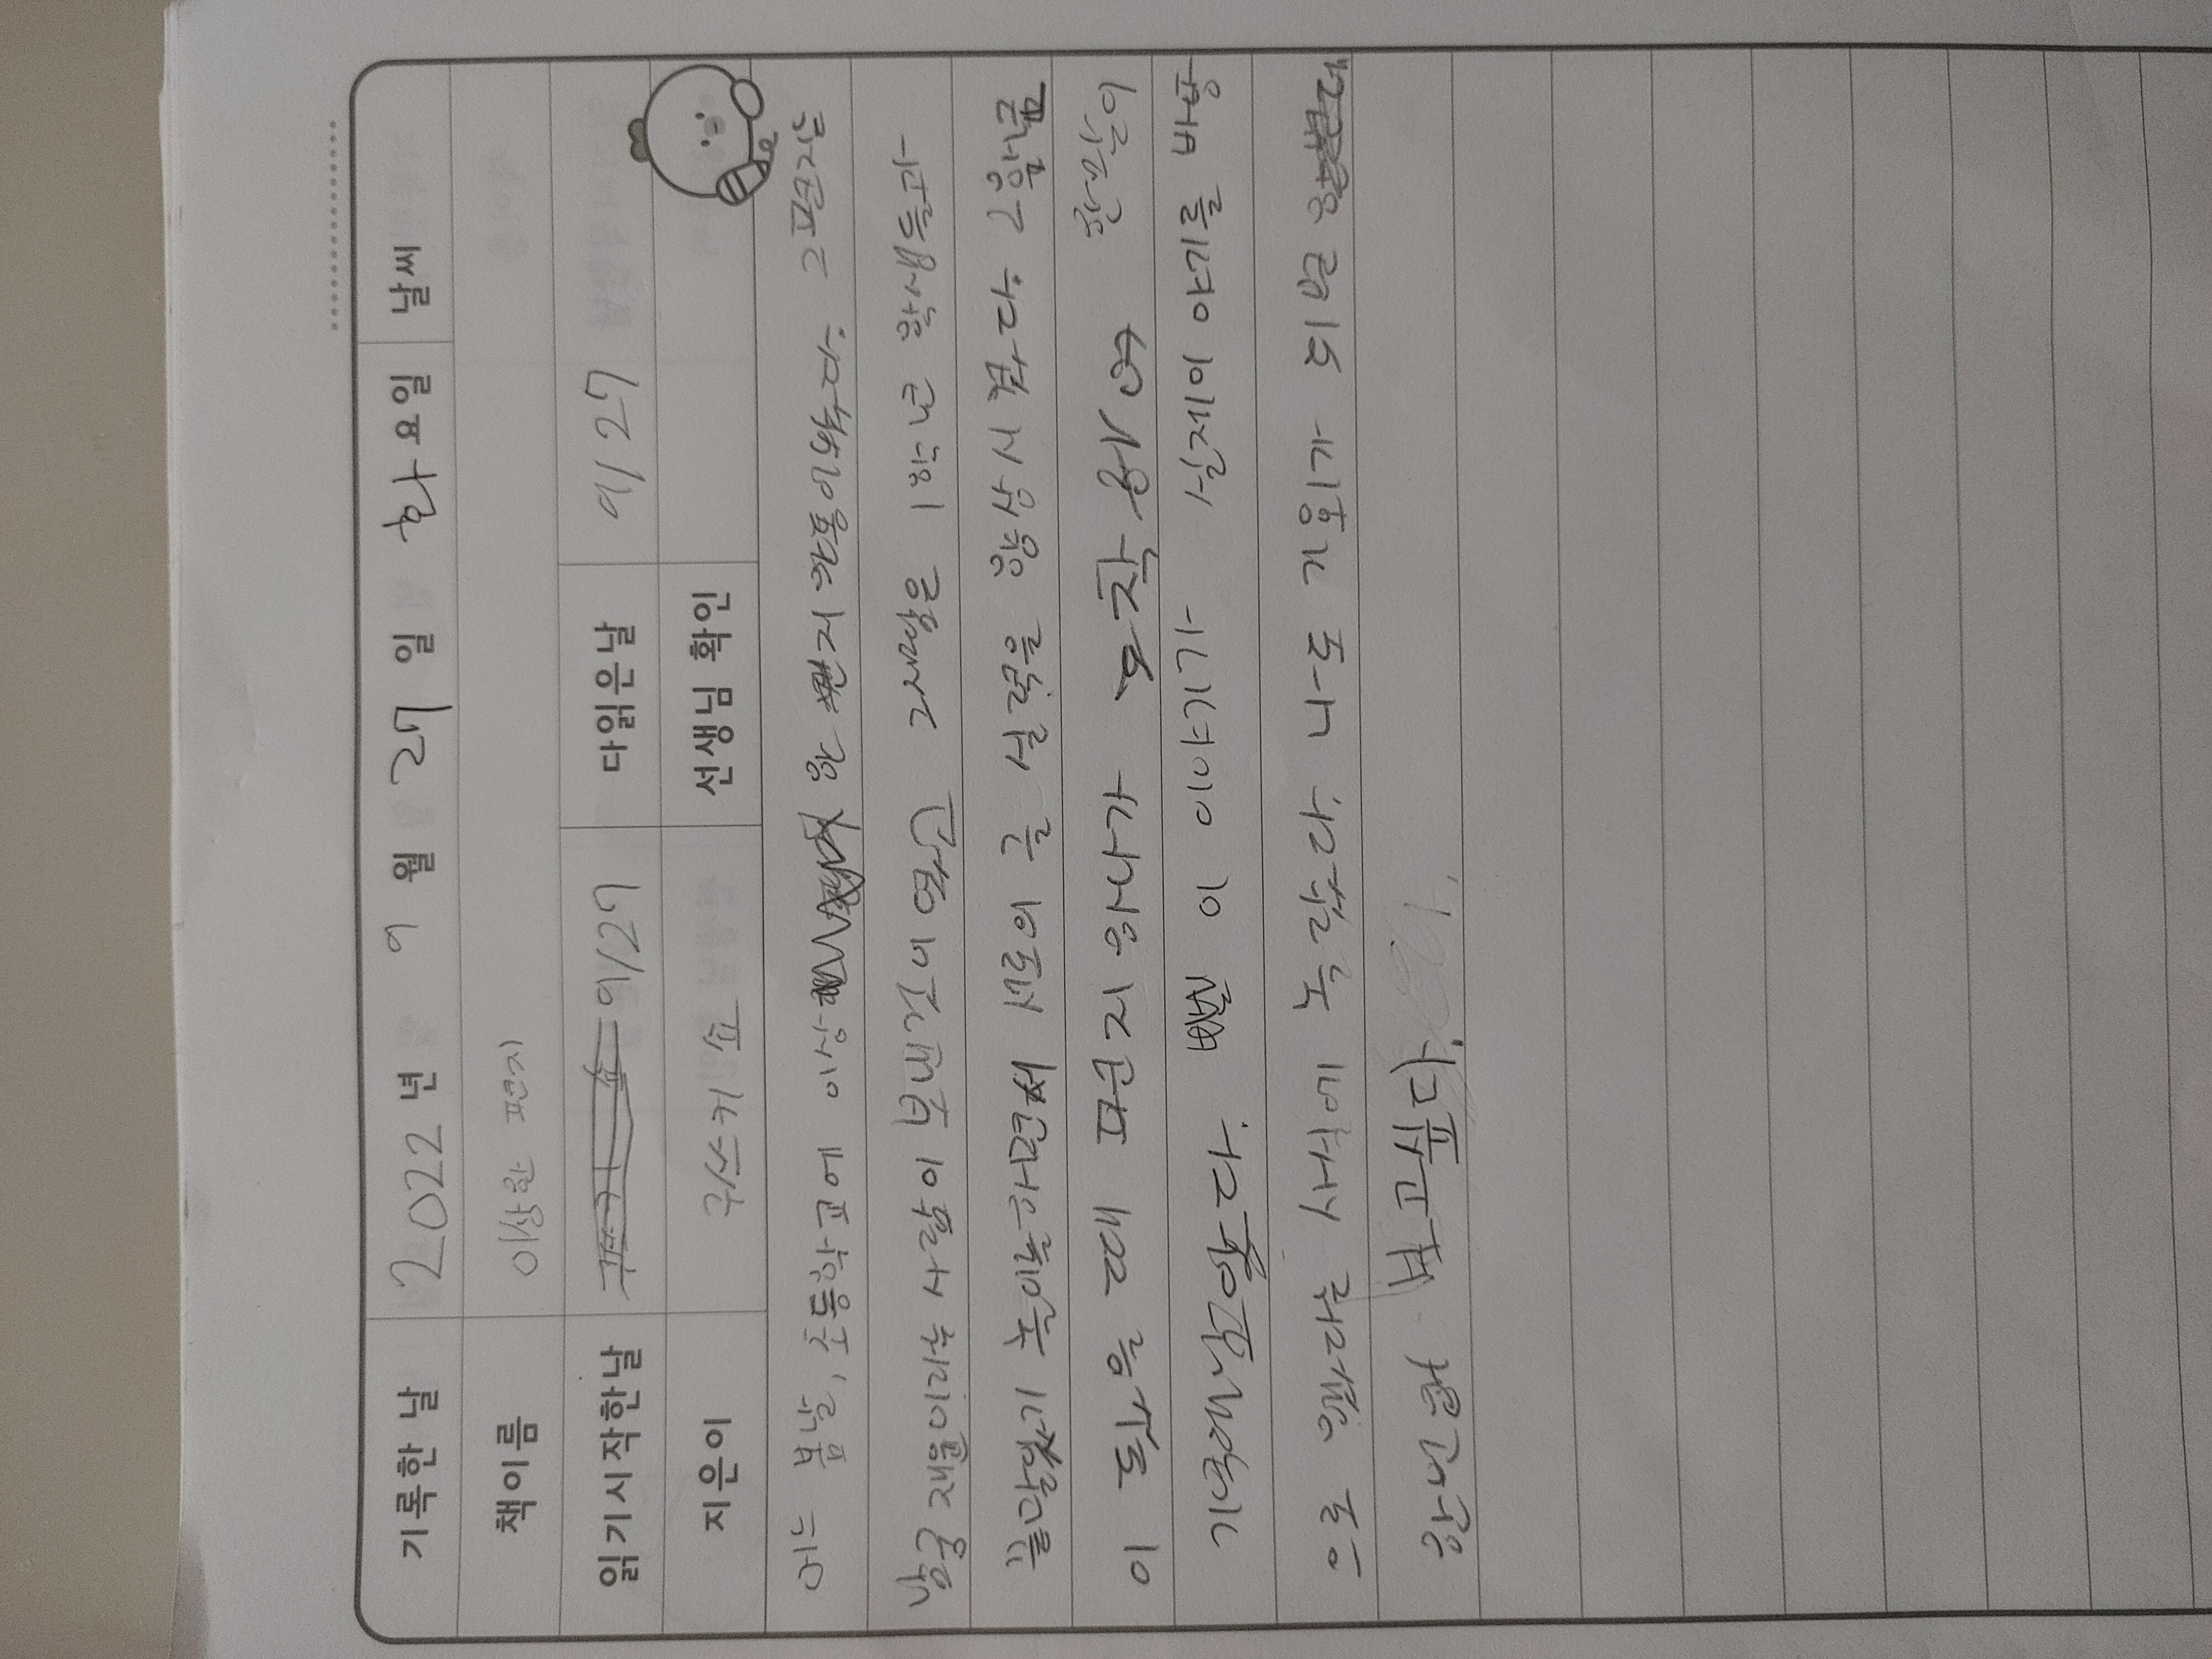 기록한 날 2022 년 9 월 27 일 화 요일 날씨
책이름 이상한 편지
읽기시작한날 9/27 다읽은날 9/27
지은이 구쓰키 쇼 선생님 확인
어느 봄날, 초등학교에 이상 한 편지 한통이왔다. 그편지는
남궁 재윤이라는 사람이 보낸것이 였고 그사람은 1학년 학생들과
끝말잇기 놀이를하면서 서로의 글 실력을 향상시켰다.
이 되었을 때 편지하나가 도착하여 한말이
기억에남고있다. 이 이야기가 실제이 야기를 바탕
으로 했다는 사실에 놀랐다. 나도 기회가 되면
한번 보고싶다.